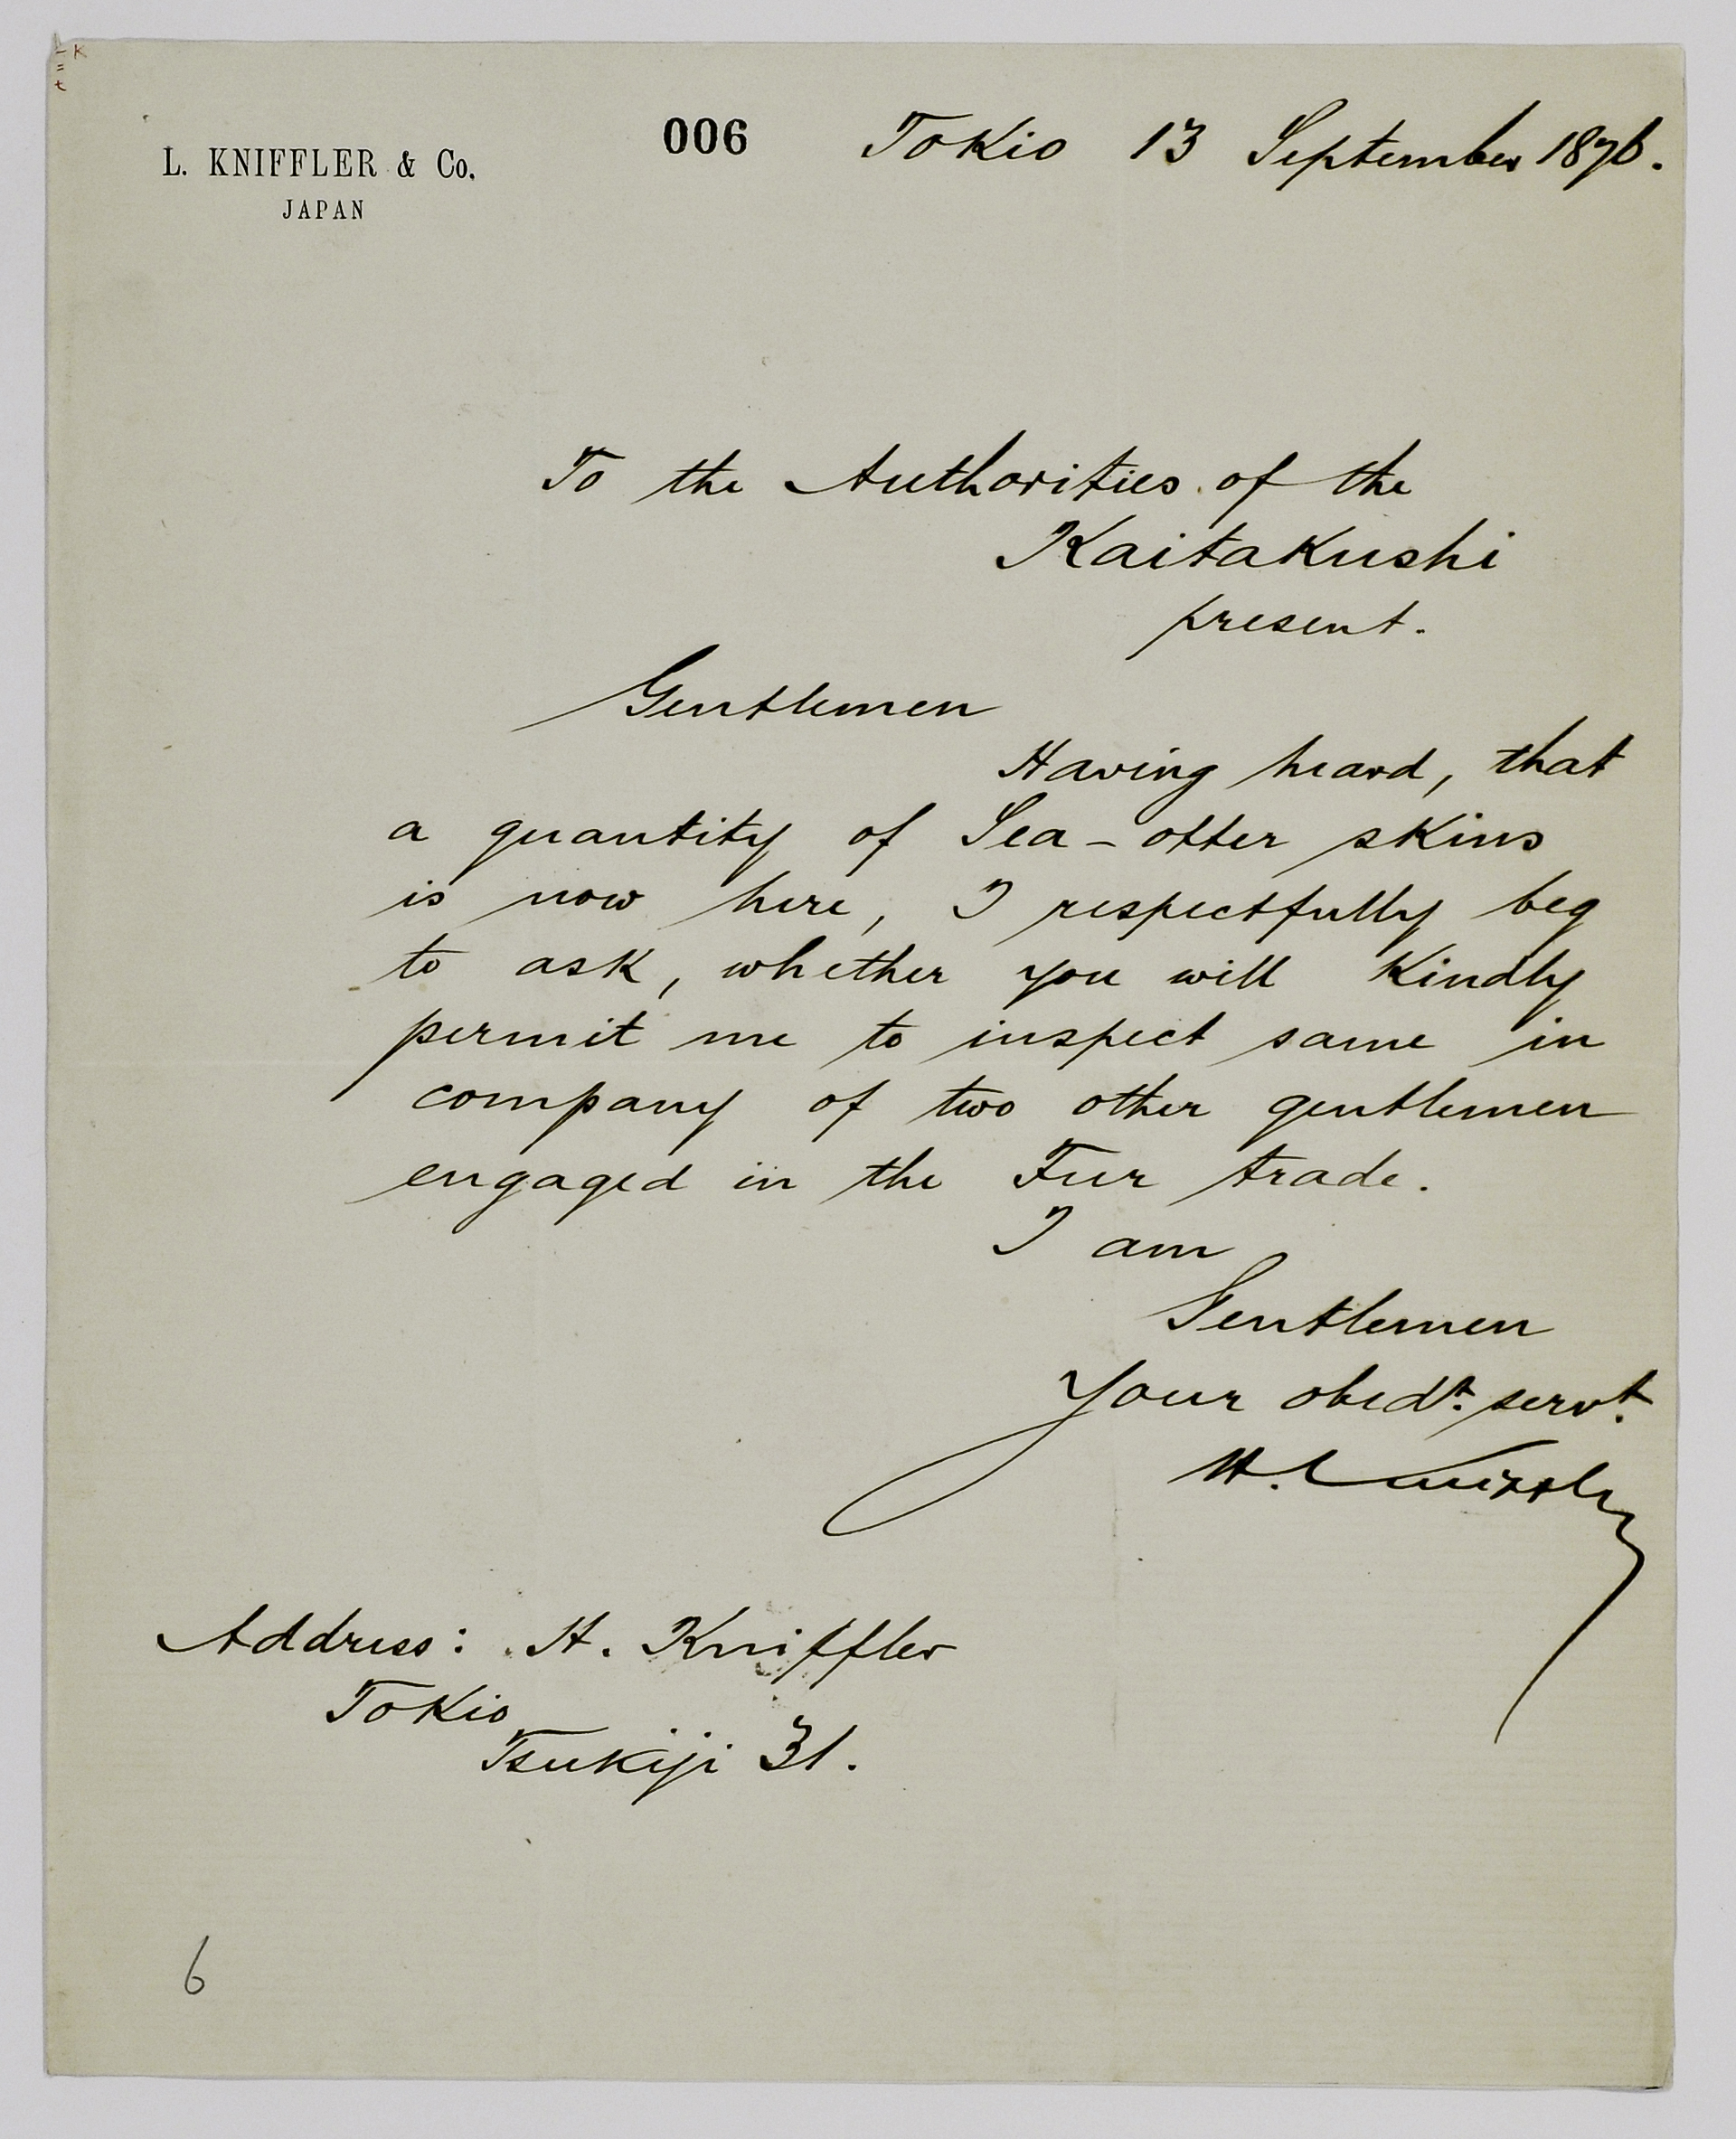 L. KNIFFLER & Co.
JAPAN
006
Tokio 13 September 1876.
To the Authorities of the
Kaitakushi
present.
Gentlemen
Having heard, that
a quantity of Sea-otter skins
is now here, I respectfully beg
to ask, whether you will kindly
permit me to inspect same in
company of two other gentlemen
engaged in the Fur trade.
I am
Gentlemen
Your obedt. servt.
H. Kniffler
Address: H. Kniffler
Tokio
Tsukiji 31.
6